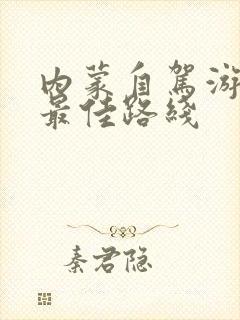 内蒙自駕游
最佳路綫
秦君隐